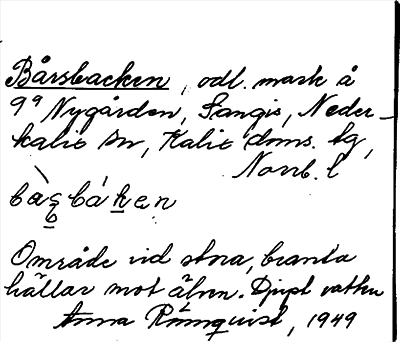 Bårsbacken, odl. mark å
gd Nygården, Sangis, Neder-
kalix sn, Kalix doms. tg,
Norrb. l
bàʂbáken
Område vid stora, branta
hällar mot älven. Djupt vatten
Anna Rönnquist, 1949